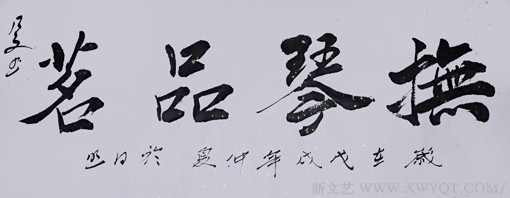 撫琴品茗
歲在戊戌年仲夏於日照
新文艺 WWW.XWYQT.COM/